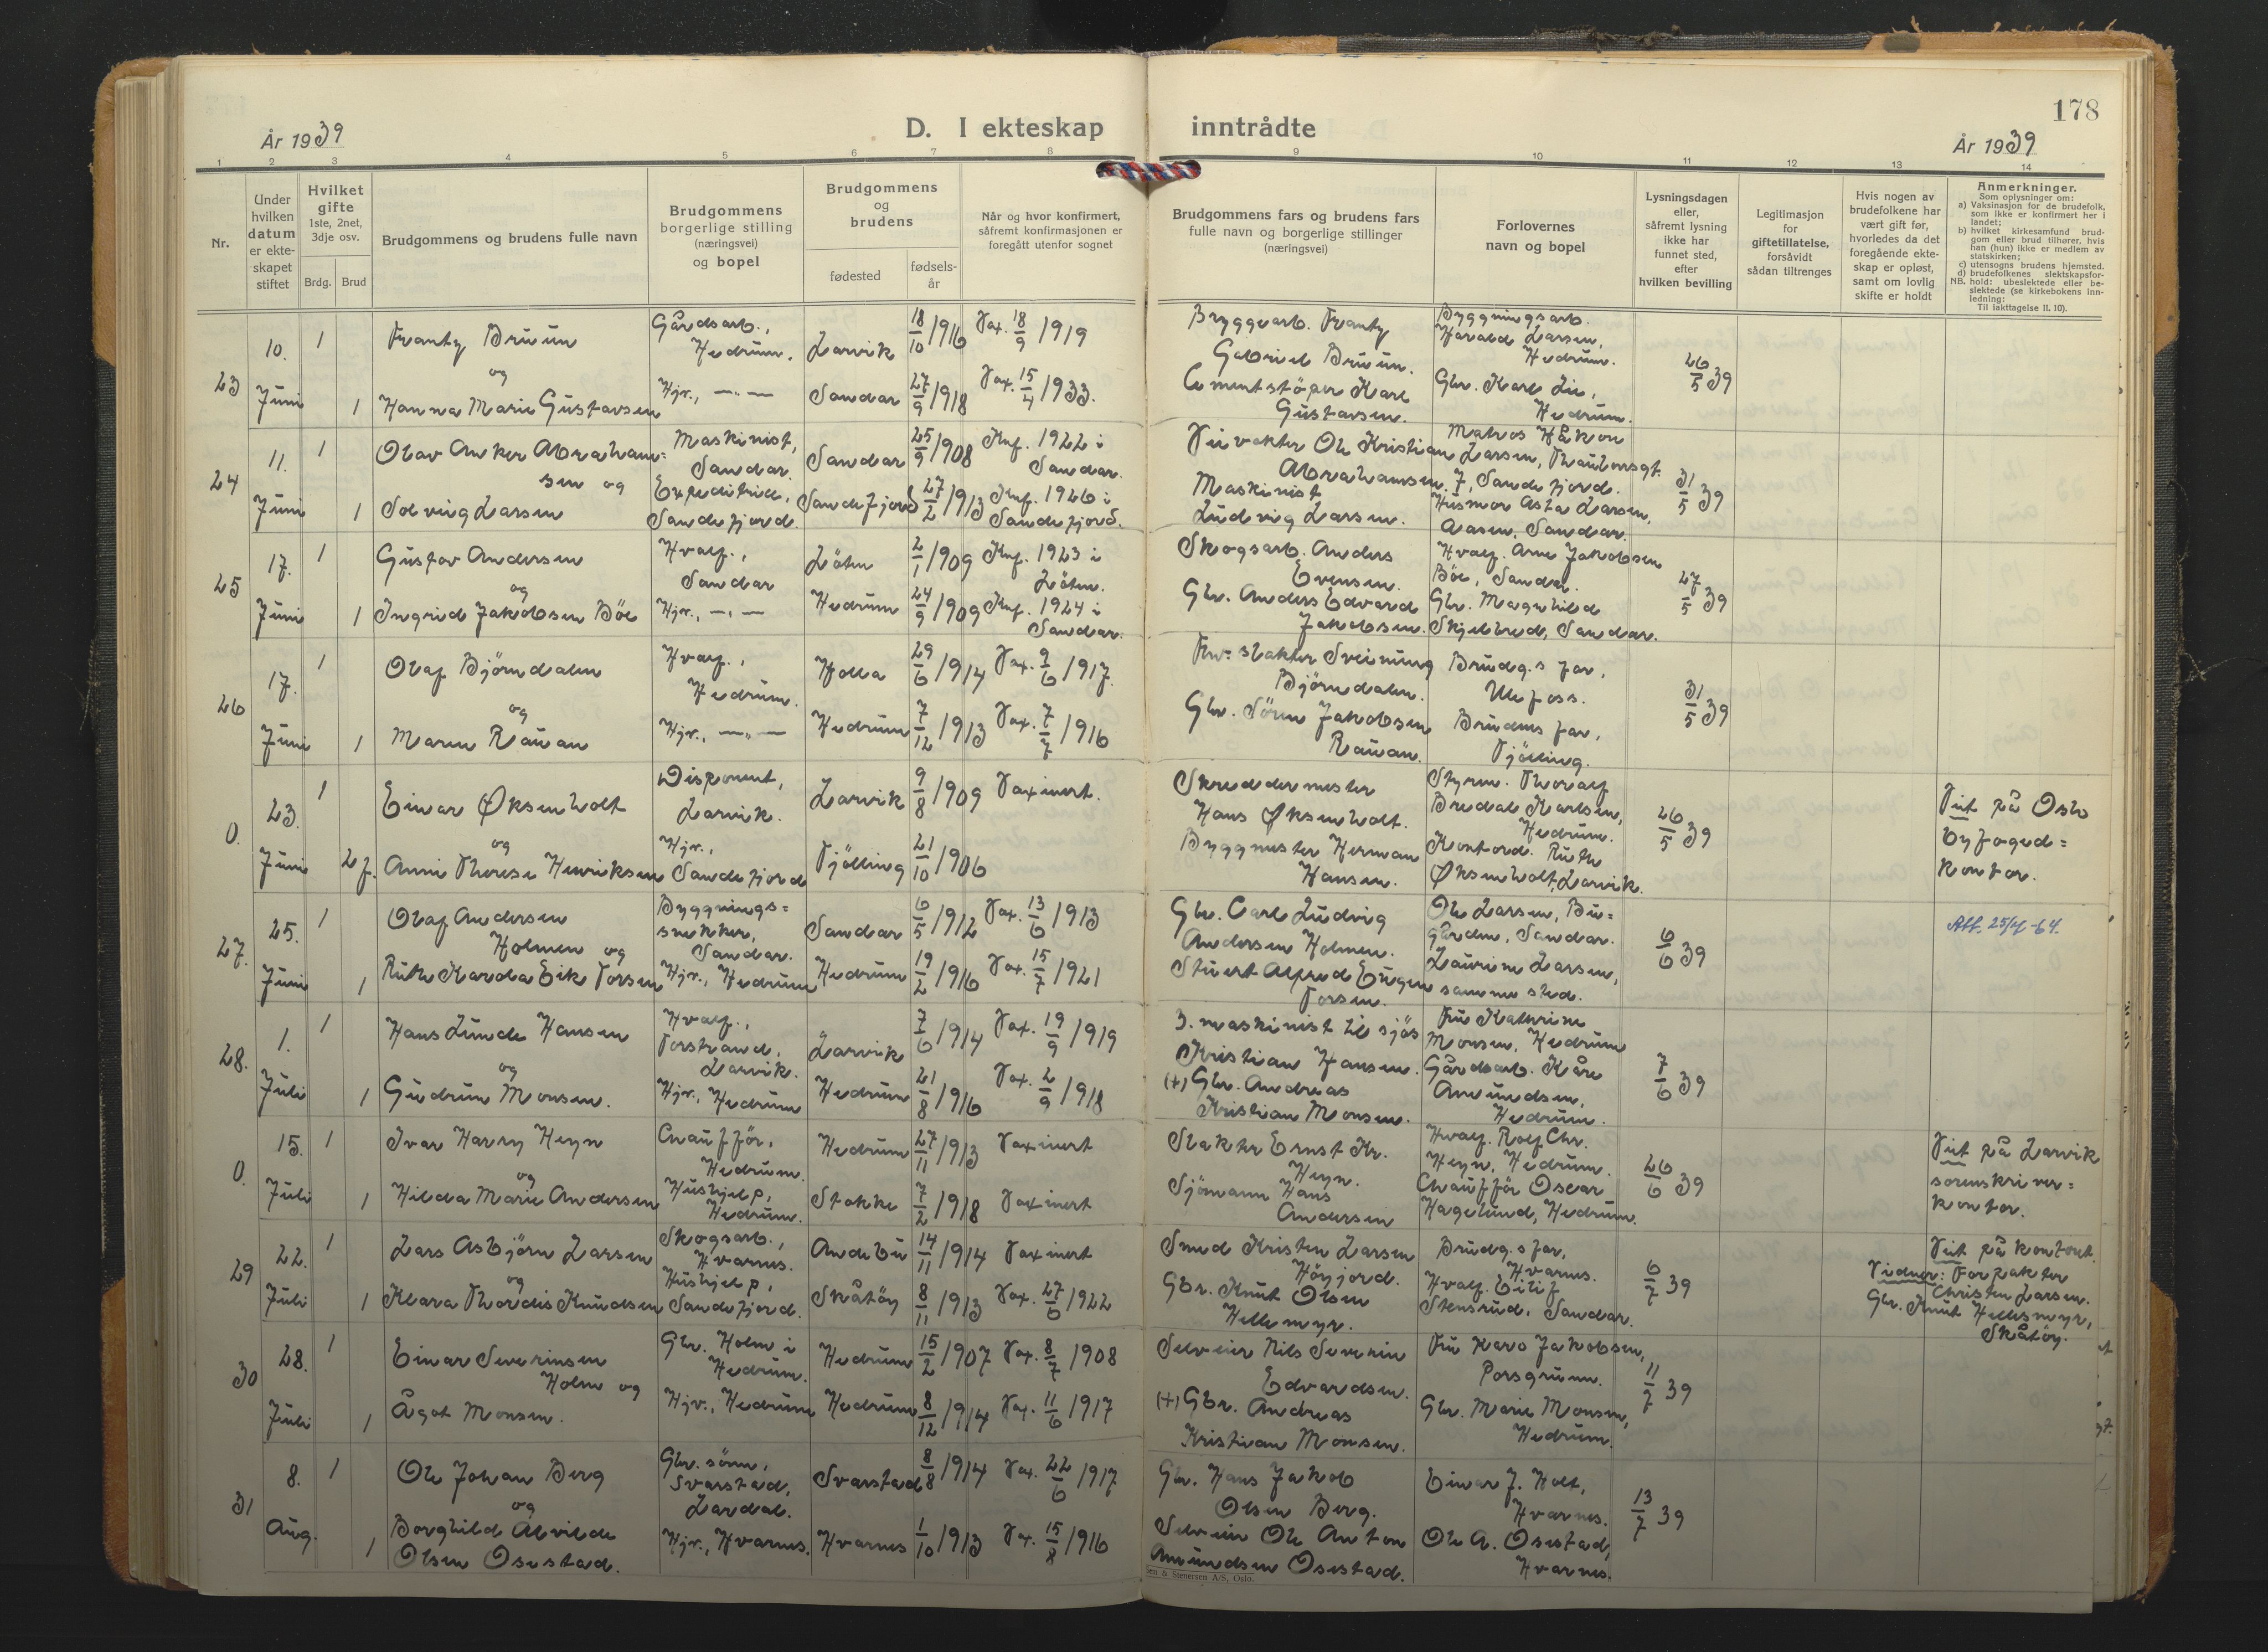 178
År 1939
D. I ekteskap inntrådte
År 1939
1 2 3 4 5 6 7 8 9 10 11 12 13 14
Nr.
Under
hvilken
datum
er ekte-
skapet
stiftet
Hvilket
gifte
1ste, 2net,
3dje osv.
Brdg. Brud
Brudgommens og brudens fulle navn
Brudgommens
borgerlige stilling
(næringsvei)
og bopel
Brudgommens
og
brudens
fødested
fødsels-
år
Når og hvor konfirmert,
såfremt konfirmasjonen er
foregått utenfor sognet
Brudgommens fars og brudens fars
fulle navn og borgerlige stillinger
(næringsvei)
Forlovernes
navn og bopel
Lysningsdagen
eller,
såfremt lysning
ikke har
funnet sted,
efter
hvilken bevilling
Legitimasjon
for
giftetillatelse,
forsåvidt
sådan tiltrenges
Hvis nogen av
brudefolkene har
vært gift før,
hvorledes da det
foregående ekte-
skap er opløst,
samt om lovlig
skifte er holdt
Anmerkninger.
Som oplysninger om:
a) Vaksinasjon for de brudefolk,
som ikke er konfirmert her i
landet;
b) hvilket kirkesamfund brud-
gom eller brud tilhører, hvis
han (hun) ikke er medlem av
statskirken;
c) utensogns brudens hjemsted.
d) brudefolkenes slektskapsfor-
NB. hold: ubeslektede eller be-
slektede (se kirkebokens inn-
ledning:
Til iakttagelse II. 10).
23
10.
Juni
1
1
Frantz Bruun
og
Hanna Marie Gustavsen
Gårdsarb.,
Hedrum.
Hjv., —"—
Larvik
Sandar
18/10 1916
27/9 1918
Vax. 18/9 1919
Vax. 15/4 1933.
Bryggearb. Frantz
Gabriel Bruun.
Cementstöper Karl
Gustavsen.
Bygningsarb.
Harald Larsen,
Hedrum.
Gbr. Karl Lie,
Hedrum.
26/5 39
24
11.
Juni
1
1
Olav Anker Abraham=
sen og
Solveig Larsen
Maskinist,
Sandar.
Expeditrice,
Sandefjord.
Sandar
Sandefjord
25/9 1908
27/2 1913
Knf. 1922 i
Sandar.
Knf. 1926 i
Sandefjord.
Ole Kristian
Abrahamsen.
Maskinist
Ludvig Larsen.
Matros Håkon
Larsen, Thaulowsgt.
7, Sandefjord.
Husmor Asta Larsen,
Aasen, Sandar.
31/5 39
25
17.
Juni
1
1
Gustav Andersen
og
Ingrid Jakobsen Böe
Hvalf.,
Sandar
Hjv., —"—
Löten
Hedrum
2/1 1909
24/9 1909
Knf. 1923 i
Löten.
Knf. 1924 i
Sandar.
Skogsarb. Anders
Evensen.
Gbr. Anders Edvard
Jakobsen.
Hvalf. Arne Jakobsen
Böe, Sandar.
Gbr. Magnhild
Skjelbred, Sandar.
27/5 39
26
17.
Juni
1
1
Olaf Björndalen
og
Maren Rauan
Hvalf.,
Hedrum.
Hjv., —"—
Holla
Hedrum
29/6 1914
7/12 1913
Vax. 9/6 1917.
Vax. 7/7 1916
Sveinung
Björndalen.
Gbr. Sören Jakobsen
Rauan.
Brudg.s far,
Ulefoss.
Brudens far,
Tjölling.
31/5 39
0.
23.
Juni
1
2 f.
Einar Øksenholt
og
Anni Therese Henriksen
Disponent,
Larvik.
Hjv.,
Sandefjord
Larvik
Tjölling
9/8 1909
21/10 1906
Vaxinert.
Skreddermester
Hans Øksenholt.
Byggmester Herman
Hansen.
Styrm. Thoralf
Bredal Karlsen,
Hedrum.
Kontord. Ruth
Øksenholt, Larvik.
26/5 39
Viet på Oslo
byfoged=
kontor.
27.
25.
Juni
1
1
Olaf Andersen
Holmen og
Ruth Harda Eik Torsen
Bygnings=
snekker,
Sandar.
Hjv., Hedrum
Sandar
Hedrum
6/5 1912
19/2 1916
Vax. 13/6 1913
Vax. 15/7 1921
Gbr. Carl Ludvig
Andersen Holmen.
Stuert Alfred Eugen
Torsen.
Ole Larsen, Bu=
gården, Sandar.
Laurine Larsen,
samme sted.
6/6 39
Att. 25/4-64.
28.
1.
Juli
1
1
Hans Lunde Hansen
og
Gudrun Monsen.
Hvalf.,
Torstrand,
Larvik.
Hjv., Hedrum
Larvik
Hedrum
7/6 1914
21/8 1916
Vax. 19/9 1919
Vax. 2/9 1918
3. maskinist til sjøs
Kristian Hansen.
(+) Gbr. Andreas
Kristian Monsen.
Fru Kathrine
Monsen, Hedrum
Gårdsarb. Kåre
Amundsen,
Hedrum.
7/6 39
0.
15.
Juli
1
1
Ivar Harry Heyn
og
Hilda Marie Andersen
Chaufför,
Hedrum.
Hushjelp,
Hedrum.
Hedrum
Stokke
27/11 1913
7/2 1918
Vaxinert
Vaxinert
Slakter Ernst Kr.
Heyn.
Sjömann Hans
Andersen
Hvalf. Rolf Chr.
Heyn, Hedrum.
Chauffør Oscar
Hagelund, Hedrum.
26/6 39
Viet på Larvik
sorenskriver=
kontor.
29
22.
Juli
1
1
Lars Asbjörn Larsen
og
Klara Thordis Knudsen
Skogsarb.,
Hvarnes.
Hushjelp,
Sandefjord.
Andebu
Skåtöy
14/11 1914
8/11 1913
Vaxinert
Vax. 27/6 1922
Smed Kristen Larsen
Höyjord.
Gbr. Knut Olsen
Hellemyr.
Brudg.s far,
Hvarnes.
Hvalf. Eilif
Stensrud, Sandar.
6/7 39
Viet på kontoret.
Vidner: Forpakter
Christen Larsen.
Gbr. Knut Hellesmyr,
Skåtöy.
30
28.
Juli
1
1
Einar Severinsen
Holm og
Ågot Monsen.
Gbr. Holm i
Hedrum.
Hjv., Hedrum
Hedrum
Hedrum
15/2 1907
8/12 1914
Vax. 8/7 1908
Vax. 11/6 1917
Selveier Nils Severin
Edvardsen.
(+) Gbr. Andreas
Kristian Monsen.
Fru Karo Jakobsen,
Porsgrunn.
Gbr. Marie Monsen,
Hedrum.
11/7 39
31
8.
Aug.
1
1
Ole Johan Berg
og
Borghild Alvilde
Olsen Osestad.
Gbr. sönn,
Svarstad,
Lardal.
Hjv., Hvarnes.
Svarstad
Hvarnes
8/8 1914
1/10 1913
Vax. 22/6 1917
Vax. 15/8 1916
Gbr. Hans Jakob
Olsen Berg.
Selveier Ole Anton
Amundsen Osestad.
Einar J. Holt,
Hvarnes.
Ole A. Osestad,
Hvarnes.
13/7 39
& Stenersen A/S, Oslo.